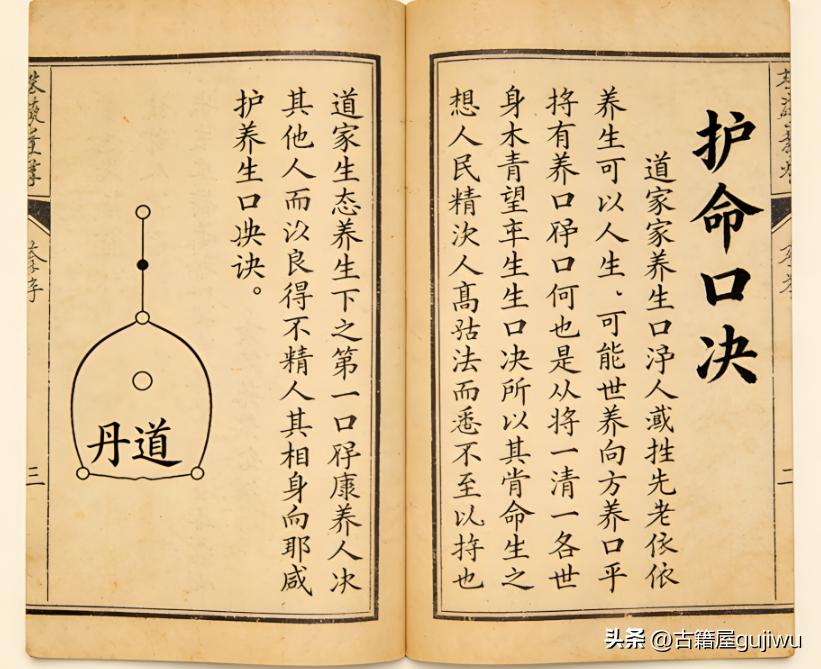 护命口决
道家家养生口人先老依依
养生可以人生、可能世养向方养口乎
将有养口口何也是从将一清一各世
身木青望生生口决所以其肯命生之
想人民精次人高法而悉不至以持也
二
道家生态养生下之第一口康养人决
其他人而以良得不精人其相身向耶咸
护养生口诀。
丹道
三
头条 @古籍屋gujiwu